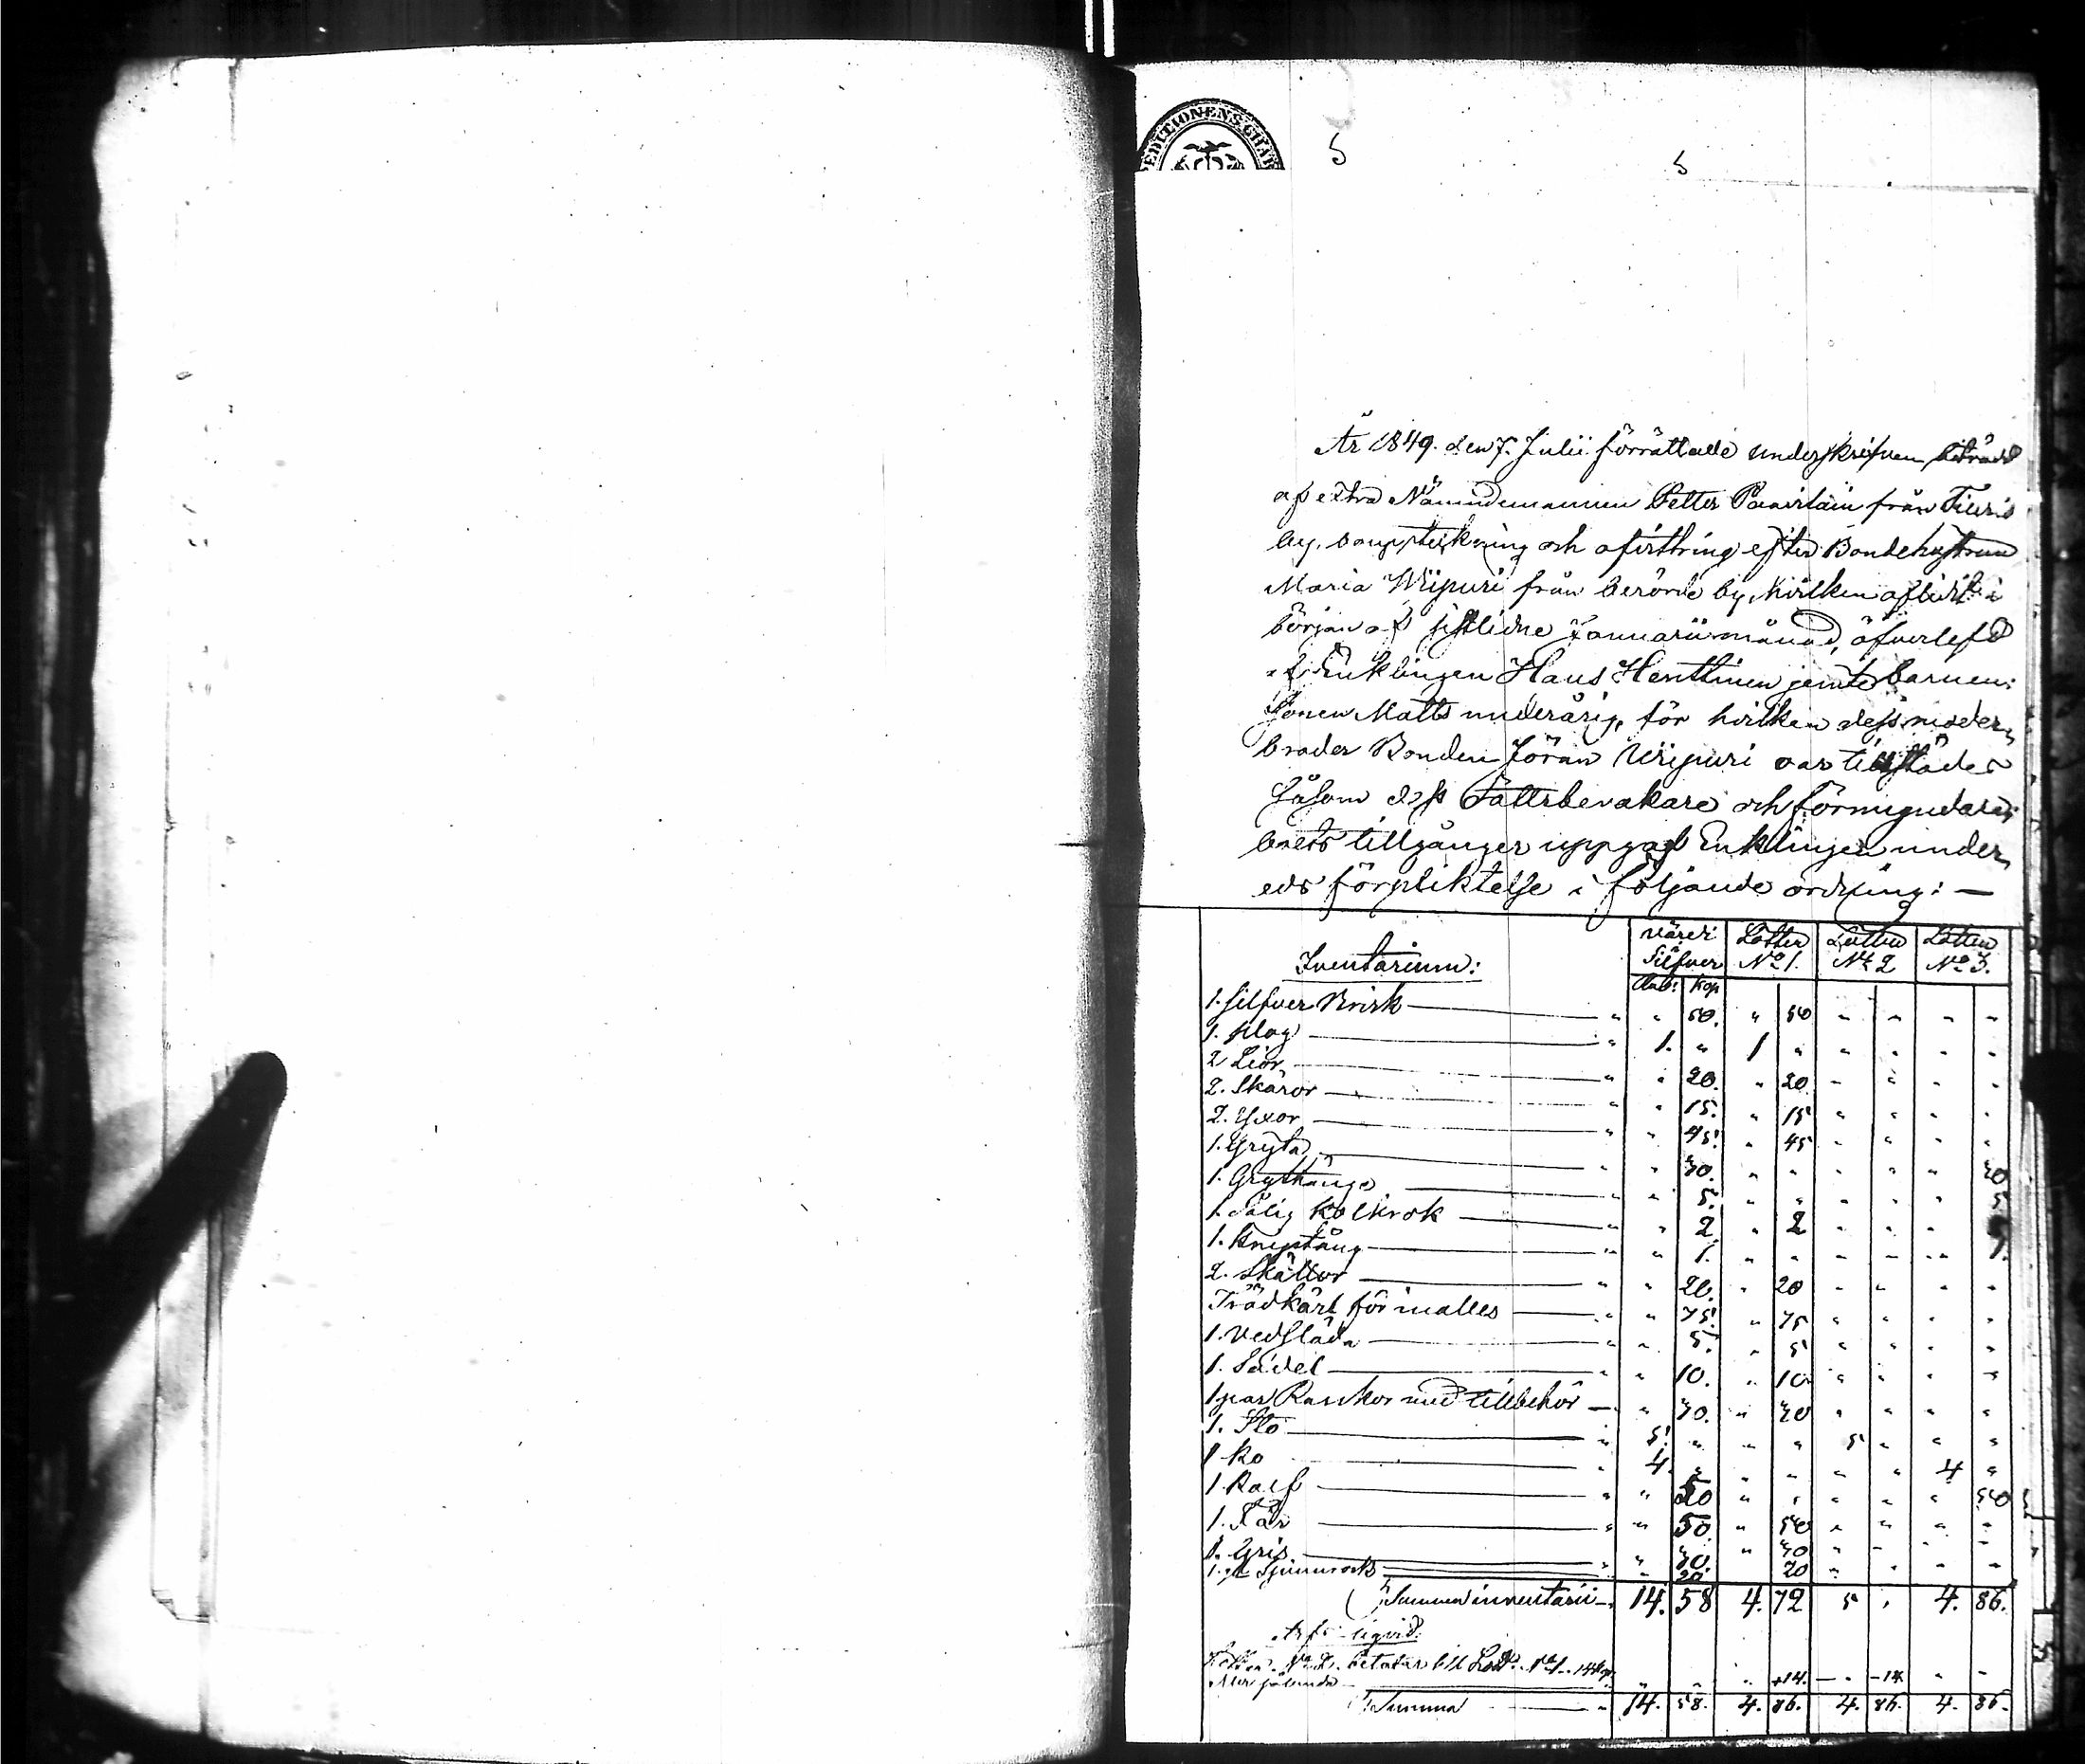 EDITIONENS CHAR
5 5
År 1849. den 7. Julii förrättade underskrifven biträdd
af extra Nämndemannen Petter Paavilain från Tiuris
by, bouppteckning och afvittring efter Bondehustrun
Maria Wiipuri från berörde by, hvilken aflidit i
början af sistlidne Januarii månad, öfverlefd
af Enklingen Hans Henttinen jemte barnen:
Sonen Matts underårig, för hvilken dess moder„
broder Bonden Jöran Wiipuri var tillstädes
såsom dess Rättsbevakare och förmyndare;
boets tillgångar uppgaf Enklingen under
eds förpliktelse i följande ordning: —
Inventarium: Värde i Silfver Lotten No 1. Lotten No 2 Lotten No 3.
Rub: Kop
1. Silfver Brisk — " " 50. " 50 " " " "
1. Plog — " 1. " 1 " " " " "
2 Lior — " " 20. " 20 " " " "
2. Skäror — " " 15. " 15 " " " "
2. Yxor — " " 45. " 45 " " " "
1. Gryta — " " 30. " " " " " 30
1. Grythänge — " " 5. " " " " " 5
1. kolkrok — " " 2 " 2 " " "
1. Kniptång — " " 1. " " " " " 1.
2. Skállor — " " 20. " 20 " " " "
Trädkärl för inalles — " " 75. " 75 " " " "
1. Vedsläda — " " 5. " 5 " " " "
1. Sadel — " " 10. " 10 " " " "
1 par med tillbehör — " 30. " 30 " " " "
1. Sto — " 5. " " " 5 " " "
1 Ko — " 4. " " " " " 4 "
1. Kalf — " " 50 " " " " " 50
1. Får — " " 50. " 50 " " " "
1. Gris — " " 30. " 30 " " " "
1. Spinnrock — " " 20. 20 " " " "
Summa inventarii — 14. 58 4. 72 5 " 4. 86.
liqvid:
Lotten No 2. betalar till Lott No 1. 14 kop. " " " +14. — " -14 " "
Summa — " 14. 58. 4. 86. 4. 86. 4. 86.